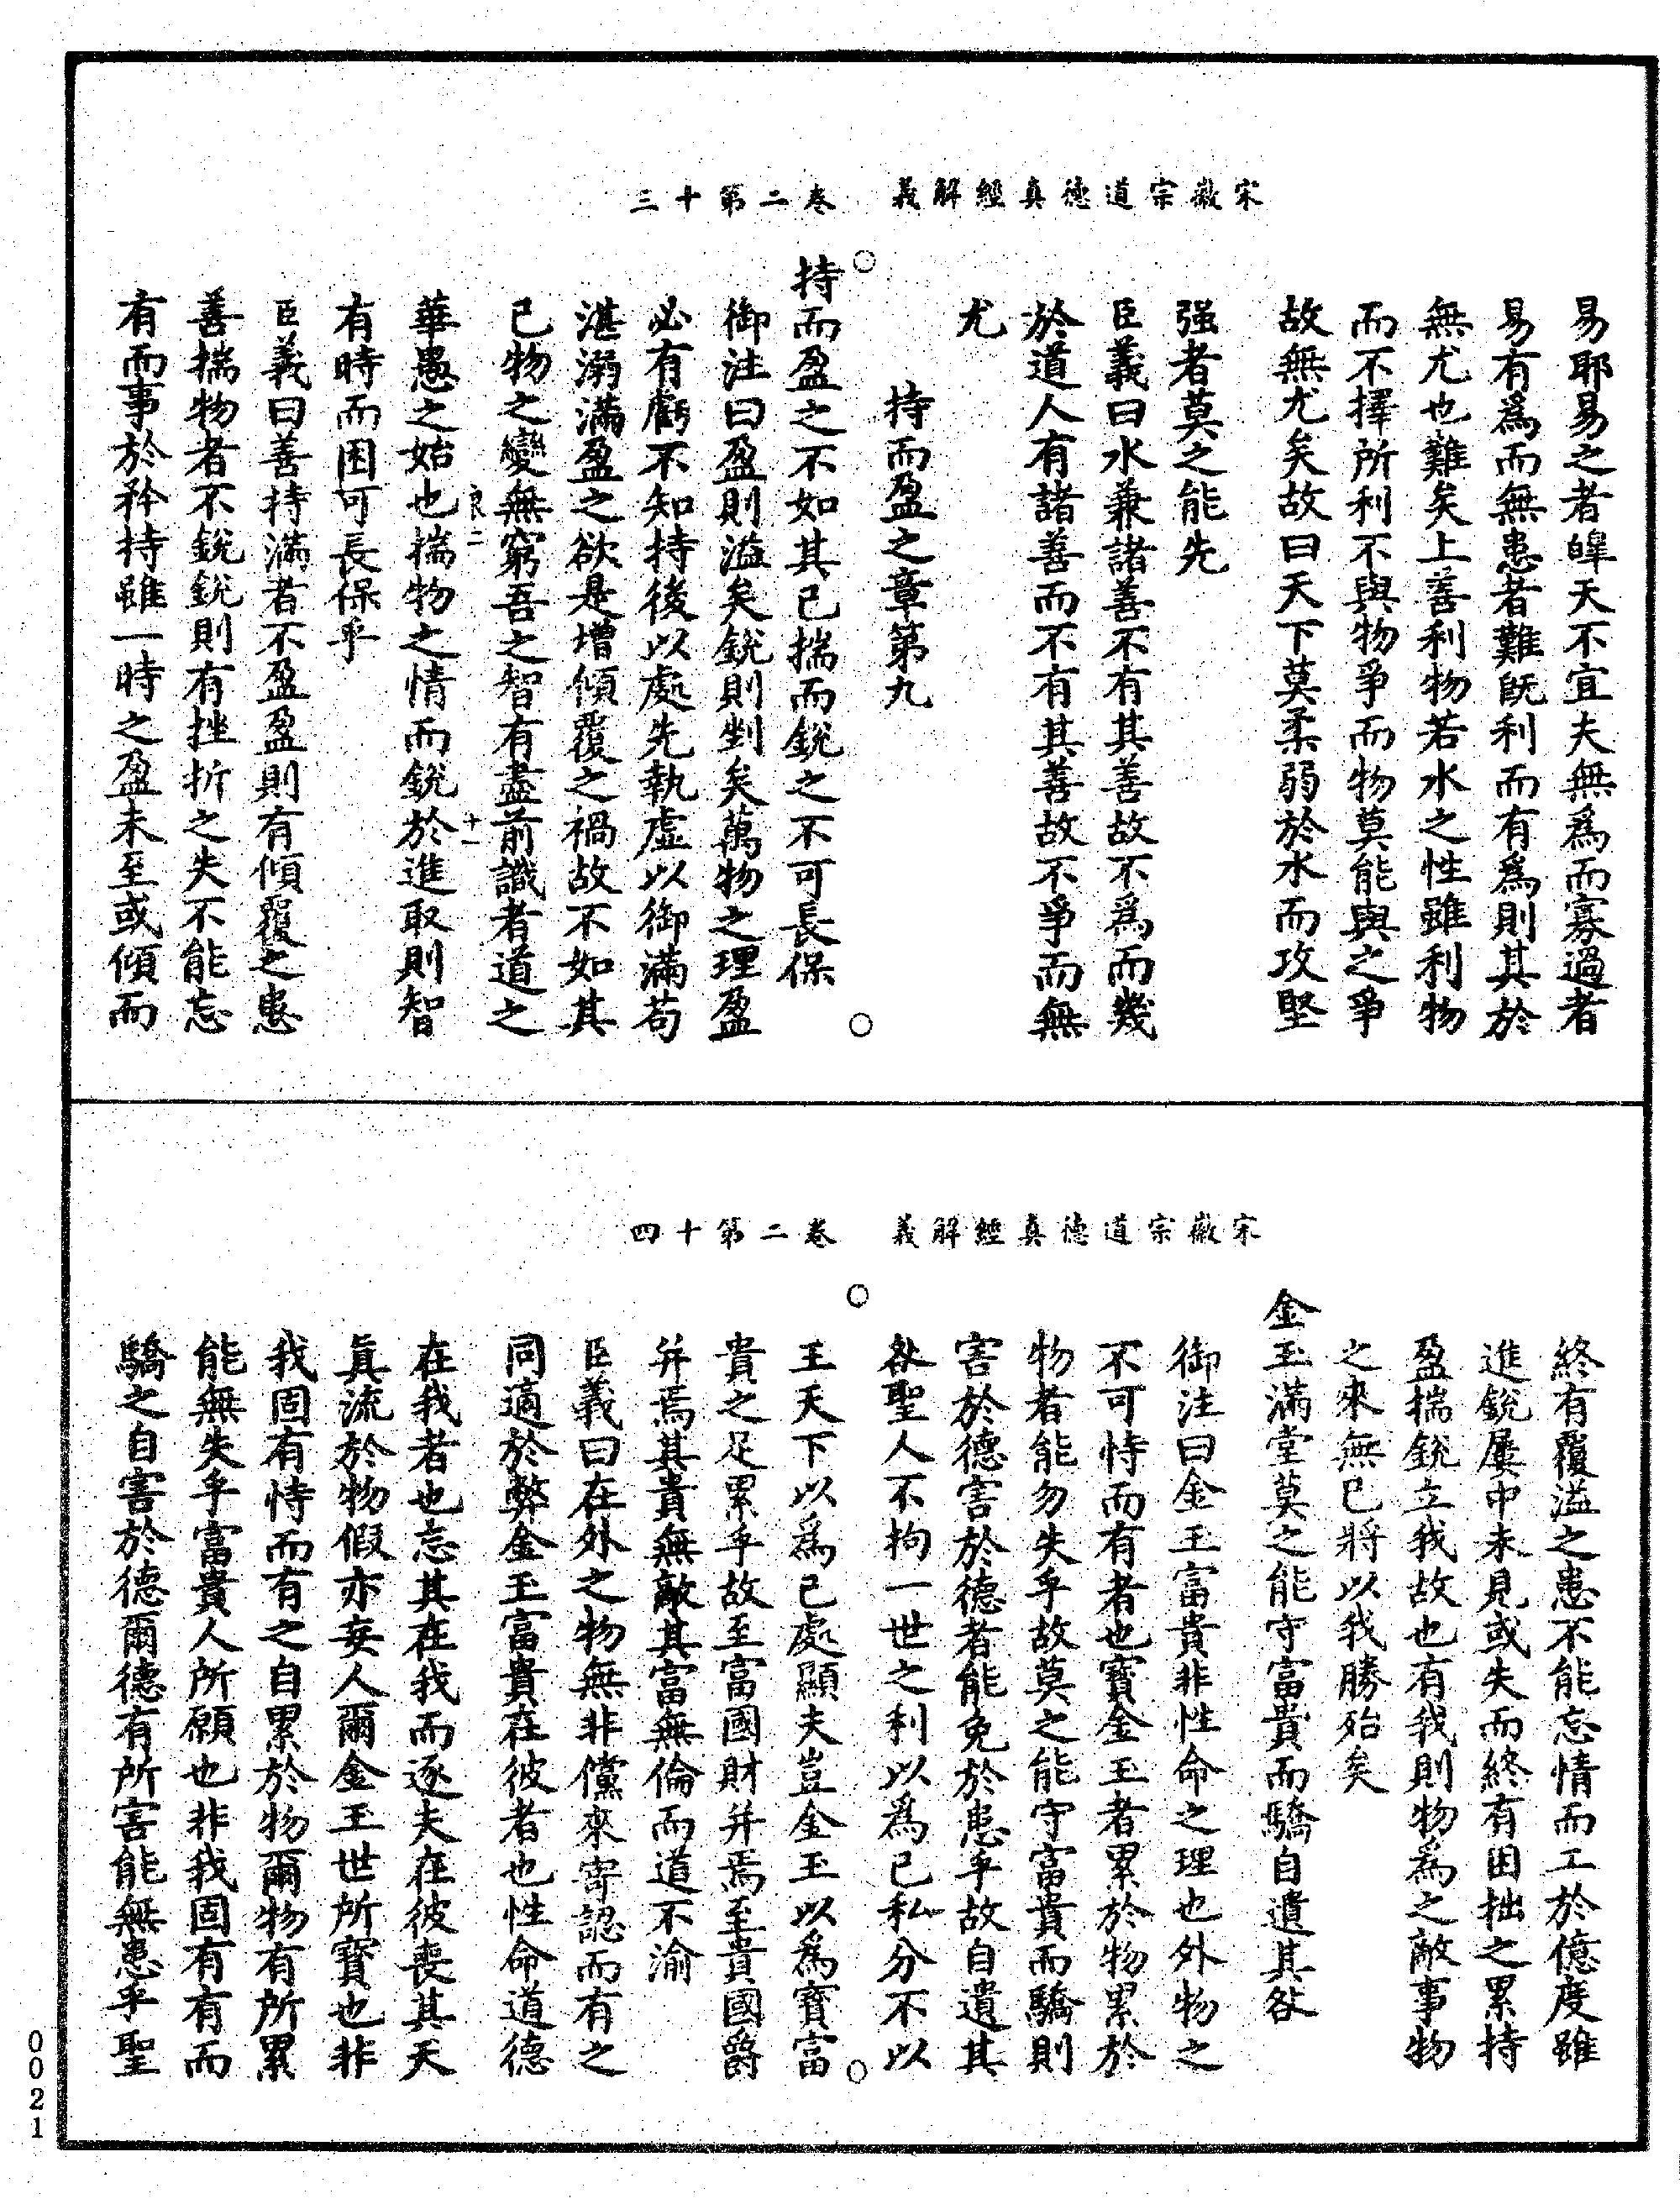 宋徽宗道德真經解義　卷二第十三
易耶易之者皞天不宜夫無爲而寡過者
易有爲而無患者難旣利而有爲則其於
無尤也難矣上善利物若水之性雖利物
而不擇所利不與物爭而物莫能與之爭
故無尤矣故曰天下莫柔弱於水而攻堅
强者莫之能先
臣義曰水兼諸善不有其善故不爲而幾
於道人有諸善而不有其善故不爭而無
尤
持而盈之章第九
持而盈之不如其已揣而銳之不可長保
御注曰盈則溢矣銳則剉矣萬物之理盈
必有虧不知持後以處先執虛以御滿苟
湛溺滿盈之欲是增傾覆之禍故不如其
已物之變無窮吾之智有盡前識者道之
良二　十一
華愚之始也揣物之情而銳於進取則智
有時而困可長保乎
臣義曰善持滿者不盈盈則有傾覆之患
善揣物者不銳銳則有挫折之失不能忘
有而事於矜持雖一時之盈未至或傾而
宋徽宗道德真經解義　卷二第十四
終有覆溢之患不能忘情而工於億度雖
進銳屢中未見或失而終有困拙之累持
盈揣銳立我故也有我則物爲之敵事物
之來無已將以我勝殆矣
金玉滿堂莫之能守富貴而驕自遺其咎
御注曰金玉富貴非性命之理也外物之
不可恃而有者也寶金玉者累於物累於
物者能勿失乎故莫之能守富貴而驕則
害於德害於德者能免於患乎故自遺其
咎聖人不拘一世之利以爲已私分不以
王天下以爲已處顯夫豈金玉以爲寶富
貴之足累乎故至富國財并焉至貴國爵
并焉其貴無敵其富無倫而道不渝
臣義曰在外之物無非儻來寄認而有之
同適於弊金玉富貴在彼者也性命道德
在我者也忘其在我而逐夫在彼喪其天
眞流於物假亦妄人爾金玉世所寶也非
我固有恃而有之自累於物爾物有所累
能無失乎富貴人所願也非我固有有而
驕之自害於德爾德有所害能無患乎聖
0021